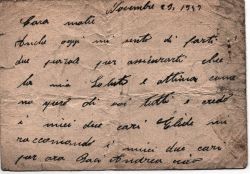 Novembre 29, 1943
Cara madre
Anche oggi mi sento di farti
due parole per assicurarti che
la mia salute è ottima come
spero di voi tutti e credo
i miei due cari
raccomando i miei due cari
per ora Baci Andrea